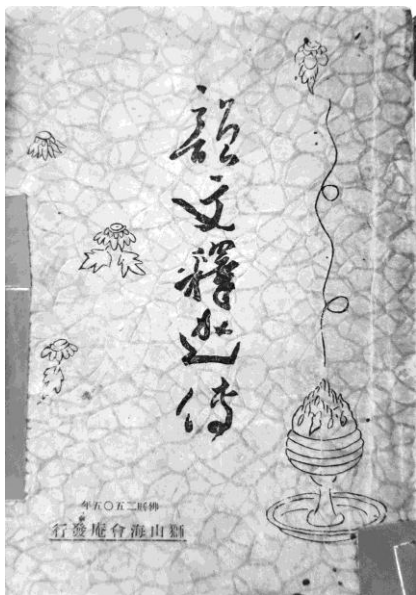 韻文釋迦傳
佛曆二五〇五年
獅山海會庵發行